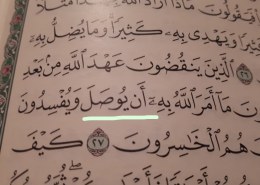 يَقُولُونَ مَاذَا أَرَادَ اللَّهُ بِهَٰذَا مَثَلًا
كَثِيرًا وَيَهْدِي بِهِ كَثِيرًا وَمَا يُضِلُّ بِهِ
٢٦ الَّذِينَ يَنقُضُونَ عَهْدَ اللَّهِ مِنْ بَعْدِ
نَ مَا أَمَرَ اللَّهُ بِهِ أَن يُوصَلَ وَيُفْسِدُونَ
هُمُ الْخَاسِرُونَ ٢٧ كَيْفَ